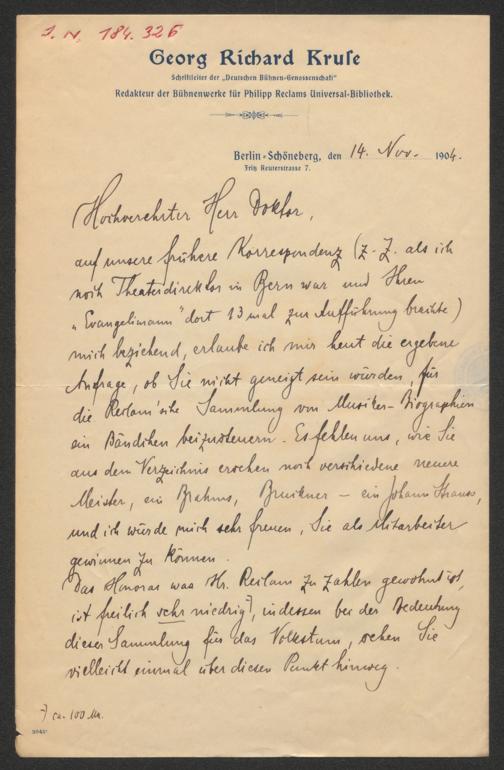 J. N. 184.326
Georg Richard Kruse
Schriftleiter der „Deutschen Bühnen-Genossenschaft“
Redakteur der Bühnenwerke für Philipp Reclams Universal-Bibliothek.
Berlin-Schöneberg, den 14. Nov. 1904.
Fritz Reuterstrasse 7.
Hochverehrter Herr Doktor,
auf unsere frühere Korrespondenz (z. Z. als ich
noch Theaterdirektor in Bern war und Ihren
„Evangelimann“ dort 13 mal zur Aufführung brachte)
mich beziehend, erlaube ich mir heut die ergebene
Anfrage, ob Sie nicht geneigt sein würden, für
die Reclam'sche Sammlung von Musiker-Biographien
ein Bändchen beizusteuern. Es fehlen uns, wie Sie
aus dem Verzeichnis ersehen noch verschiedene neuere
Meister, ein Brahms, Bruckner – ein Johann Strauss,
und ich würde mich sehr freuen, Sie als Mitarbeiter
gewinnen zu können.
Das Honorar was Hr. Reclam zu zahlen gewohnt ist,
ist freilich sehr niedrig*), indessen bei der Bedeutung
dieser Sammlung für das Volkstum, sehen Sie
vielleicht einmal über diesen Punkt hinweg.
*) ca. 100 Mk.